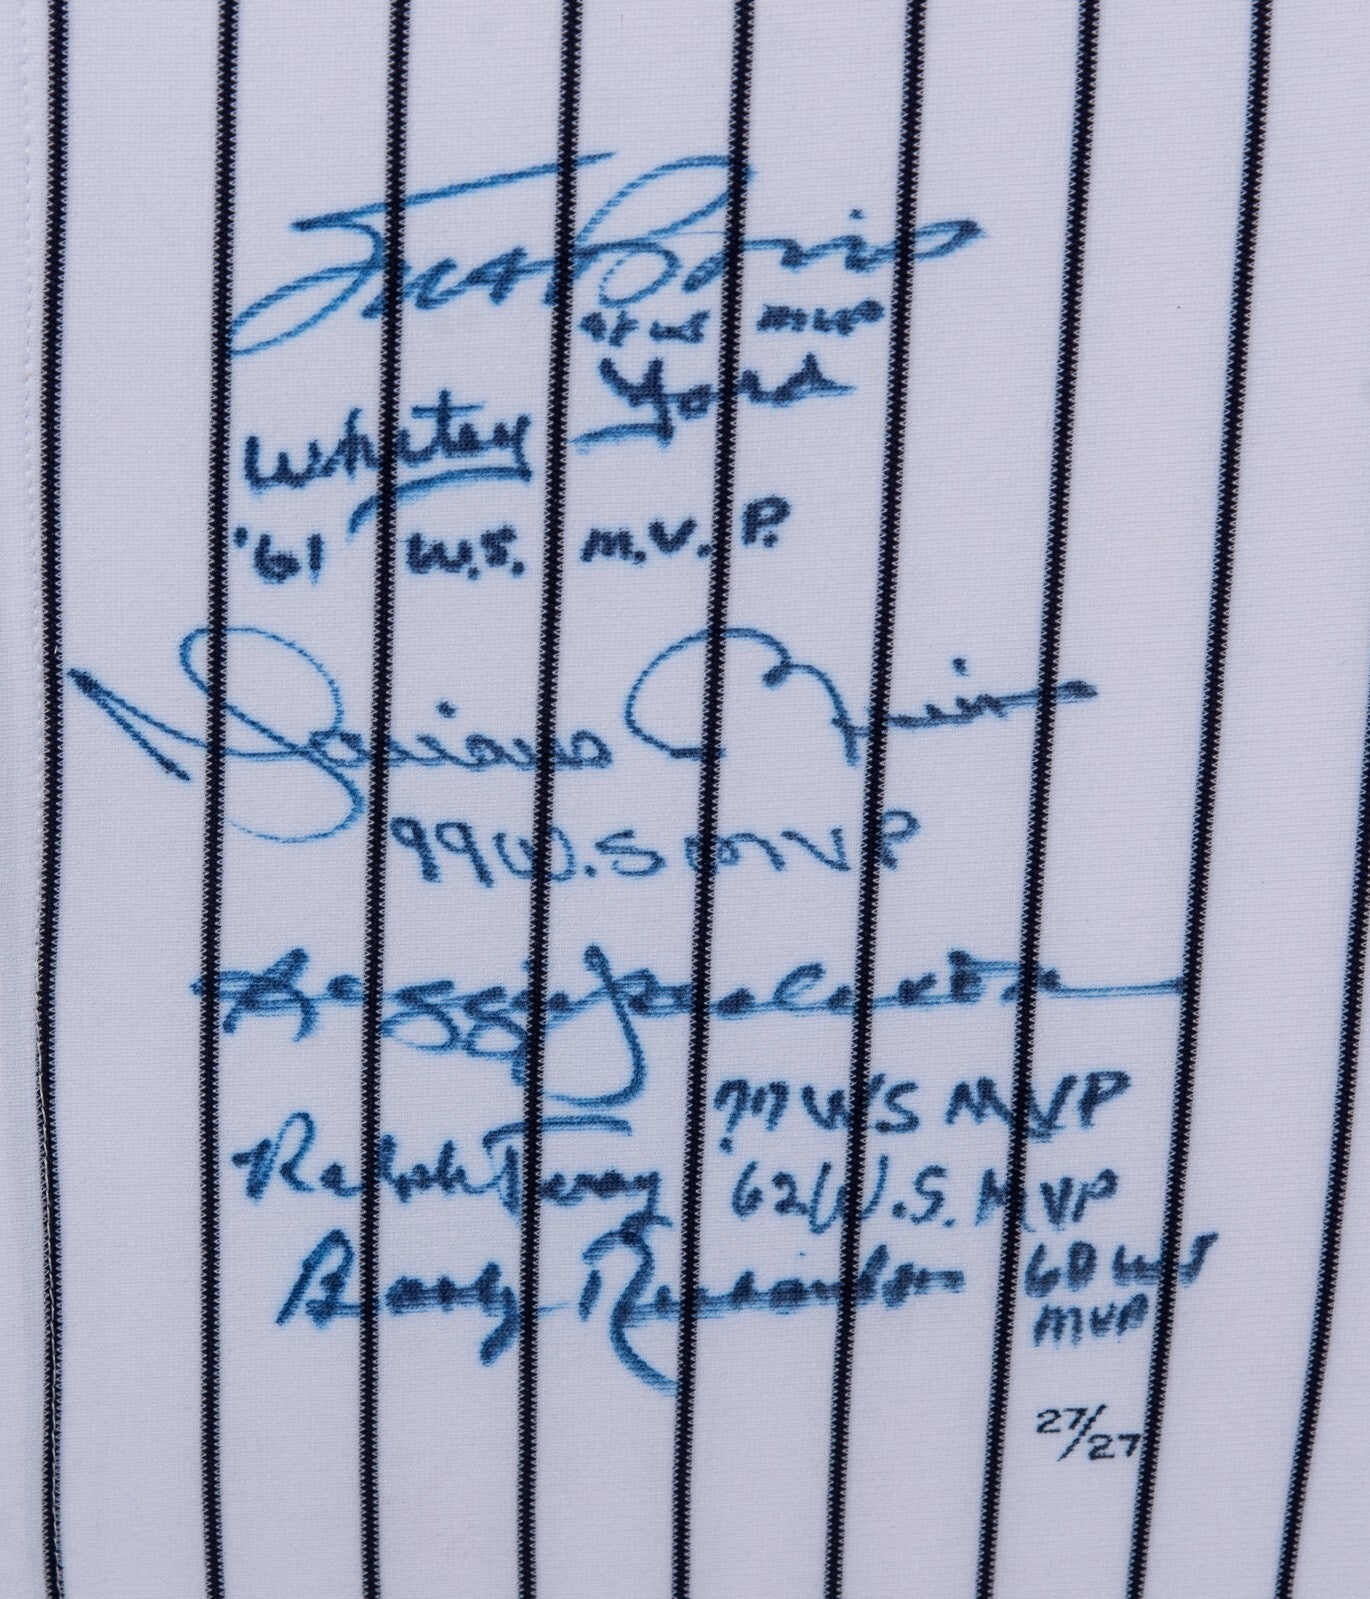 Scott Brosius
98 WS MVP
Whitey Ford
'61 W.S. M.V.P.
Mariano Rivera
99 W.S MVP
Reggie Jackson
77 WS MVP
Ralph Terry 62 W.S. MVP
Bobby Richardson 60 WS
MVP
27/27